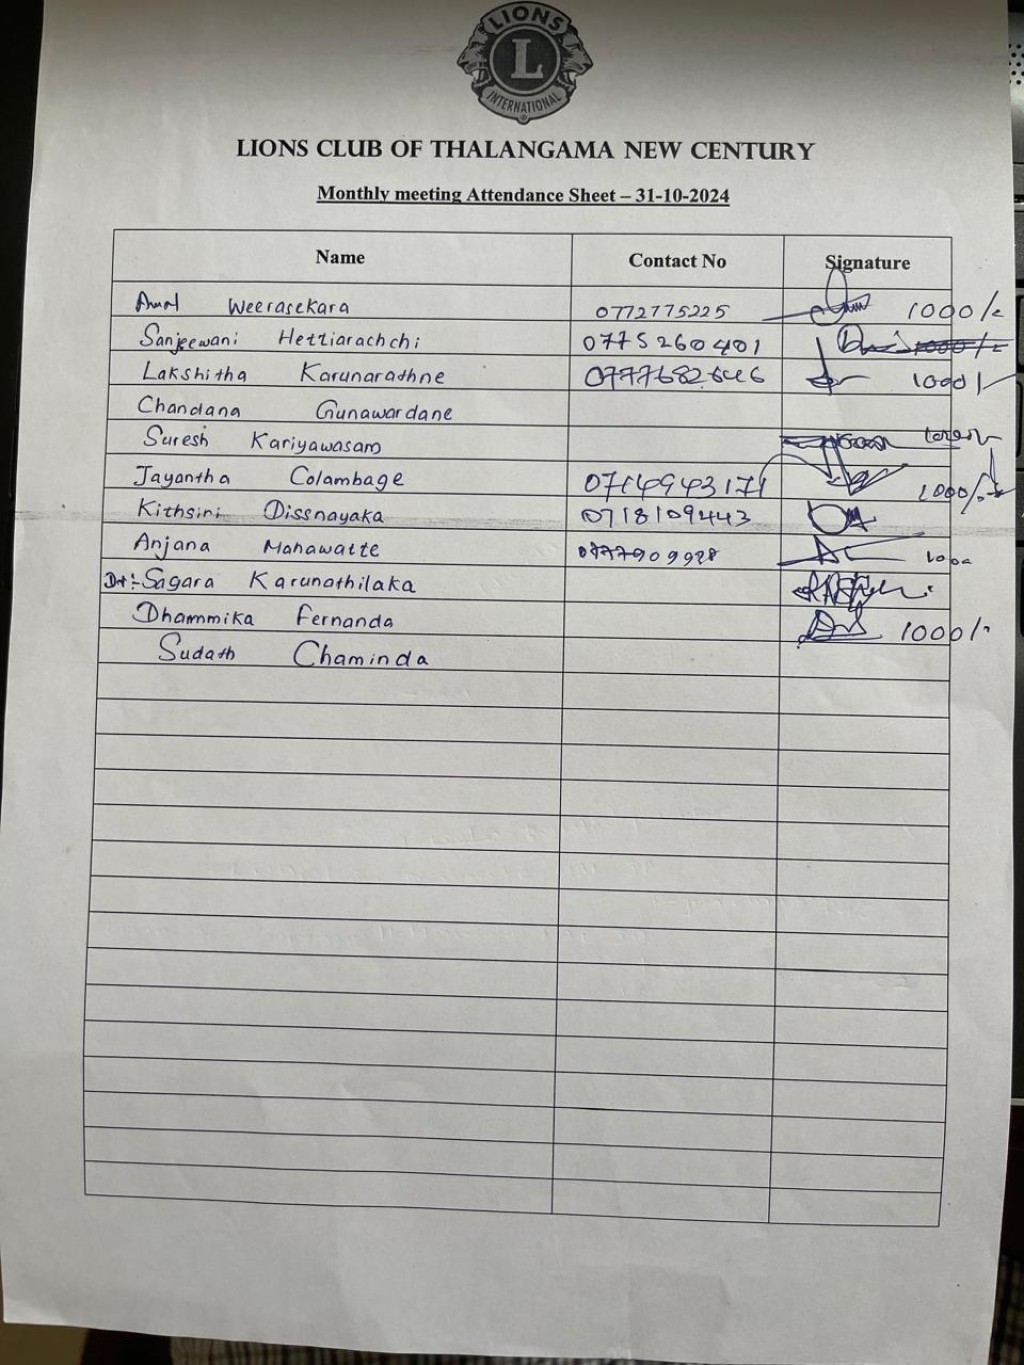 LIONS
L
INTERNATIONAL
LIONS CLUB OF THALANGAMA NEW CENTURY
Monthly meeting Attendance Sheet – 31-10-2024
Name Contact No Signature
Amal Weerasekara 0772775225 1000/-
Sanjeewani Hettiarachchi 0775260401 1000/-
Lakshitha Karunarathne 0777682646 1000/-
Chandana Gunawardane
Suresh Kariyawasam
Jayantha Colambage 0714943171 1000/-
Kithsiri Dissnayaka 0718109443
Anjana Mahawatte 0777909928 1000
Dr:- Sagara Karunathilaka
Dhammika Fernanda 1000/-
Sudath Chaminda